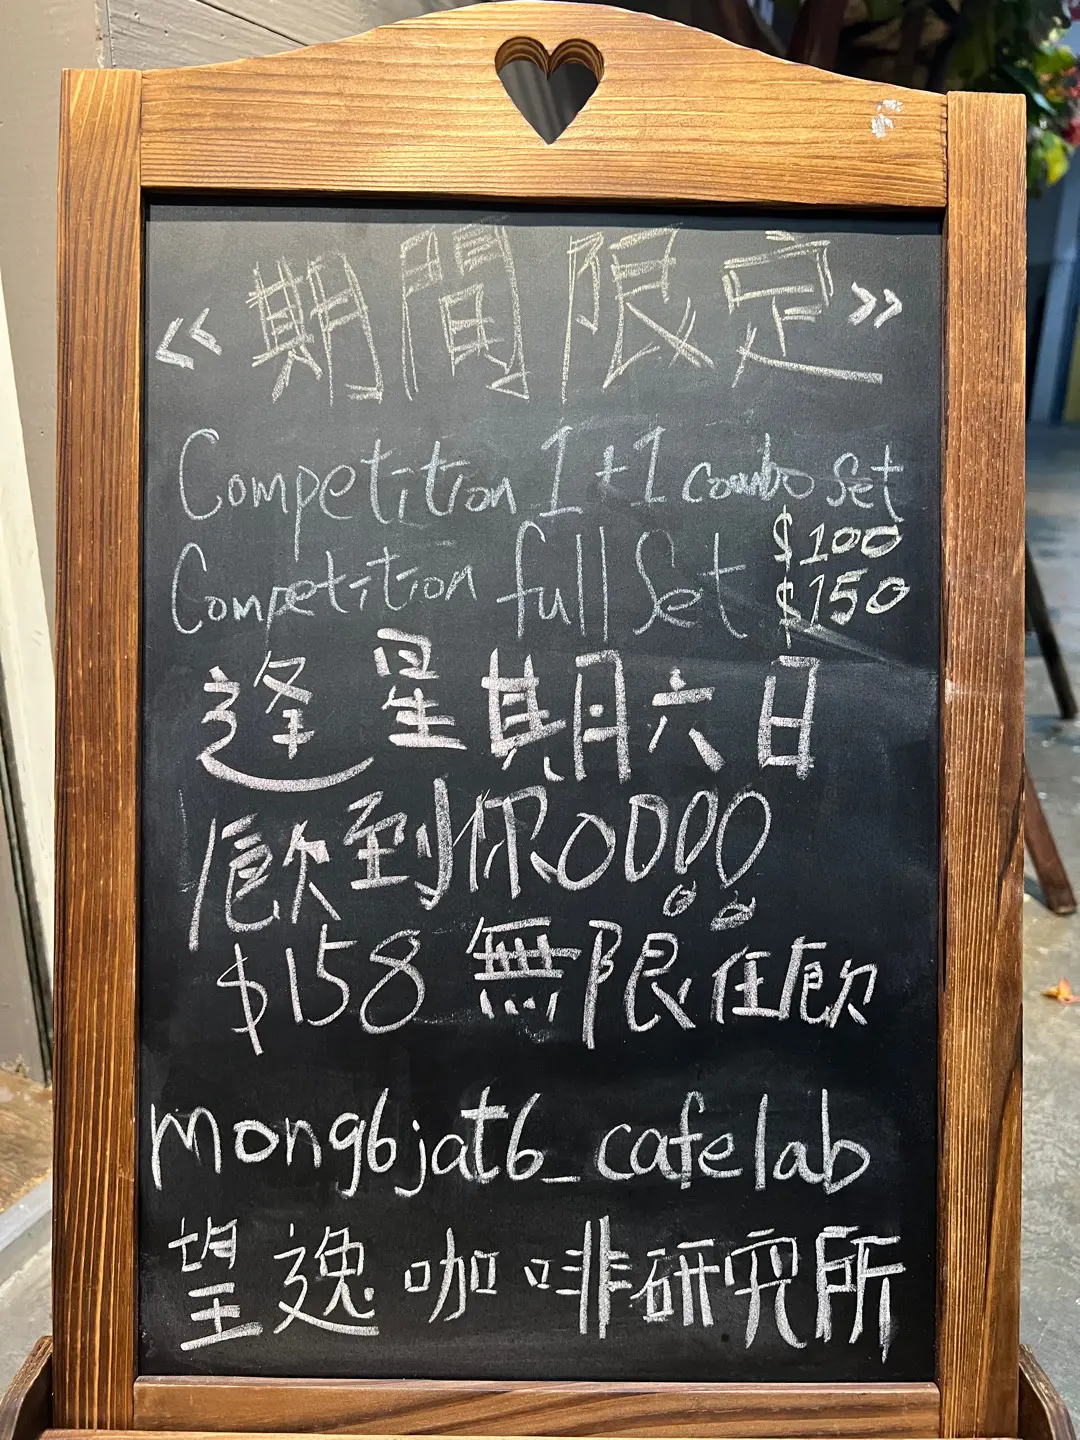 《期間限定》
Competition 1+1 combo set
$100
Competition full Set $150
逢星期六日
飲到你OOOO
$158 無限任飲
mong6jat6_cafelab
望逸咖啡研究所